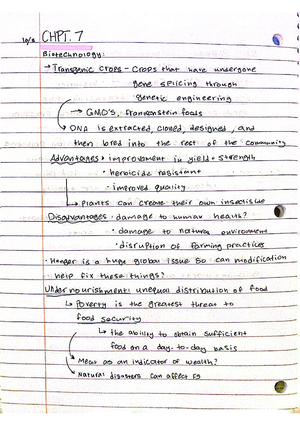 10/3 CHPT. 7
Biotechnology:
→ Transgenic crops - crops that have undergone
gene splicing through
genetic engineering
→ GMO's, frankenstein foods
→ DNA is extracted, cloned, designed, and
then bred into the rest of the community
Advantages • improvement in yield + strength
• herbicide resistant
• improved quality
↳ plants can create their own insecticide
Disadvantages • damage to human health?
• damage to natural environment
• disruption of farming practices
• Hunger is a huge global issue so can modification
help fix these things?
Undernourishment: unequal distribution of food
↳ Poverty is the greatest threat to
food security
↳ the ability to obtain sufficient
food on a day-to-day basis
→ Meat as an indicator of wealth?
→ Natural disasters can affect FS